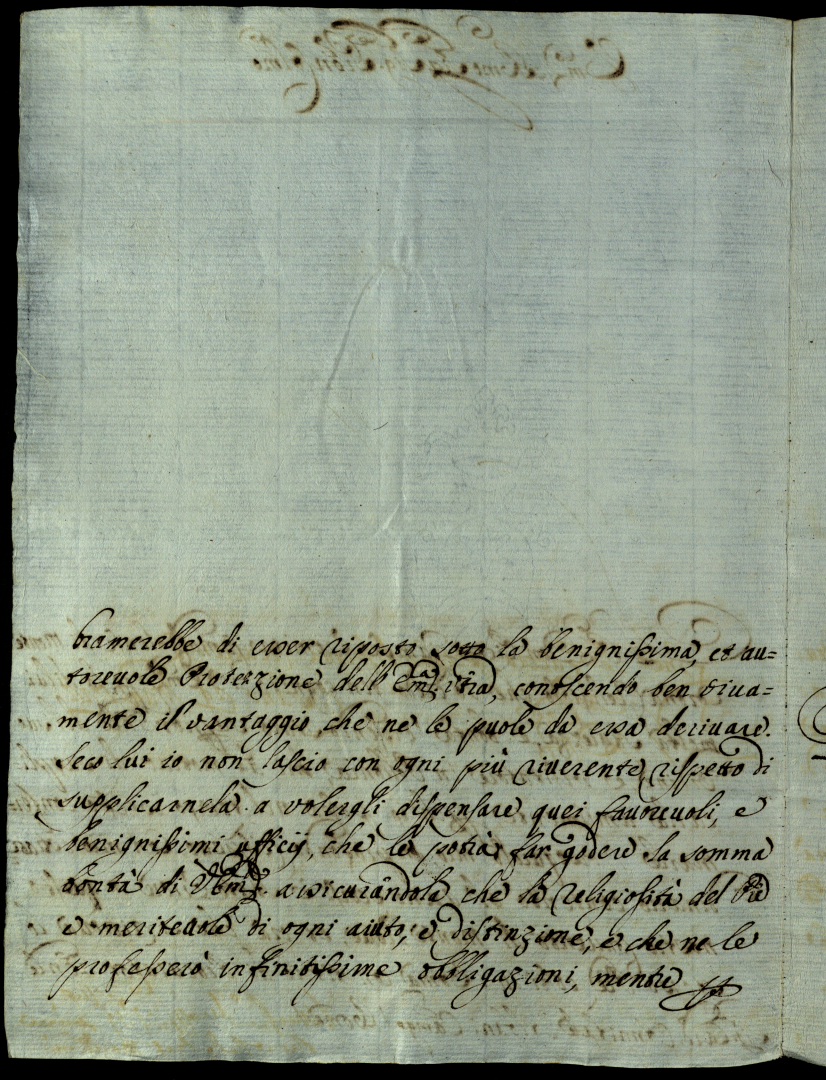 bramerebbe di esser riposto sotto la benignissima, et au=
torevole Protezzione dell' Emza Vra, conoscendo ben viva=
mente il vantaggio, che ne le puole da essa derivare.
Seco lui io non lascio con ogni più riverente rispetto di
supplicarnela a volergli dispensare quei favorevoli, e
benignissimi ufficij, che le potrà far godere la somma
bontà di assicurandola che la religiosità del Pre
e meritevole di ogni aiuto, e distinzione, e che ne le
professerò infinitissime obbligazioni, mentre